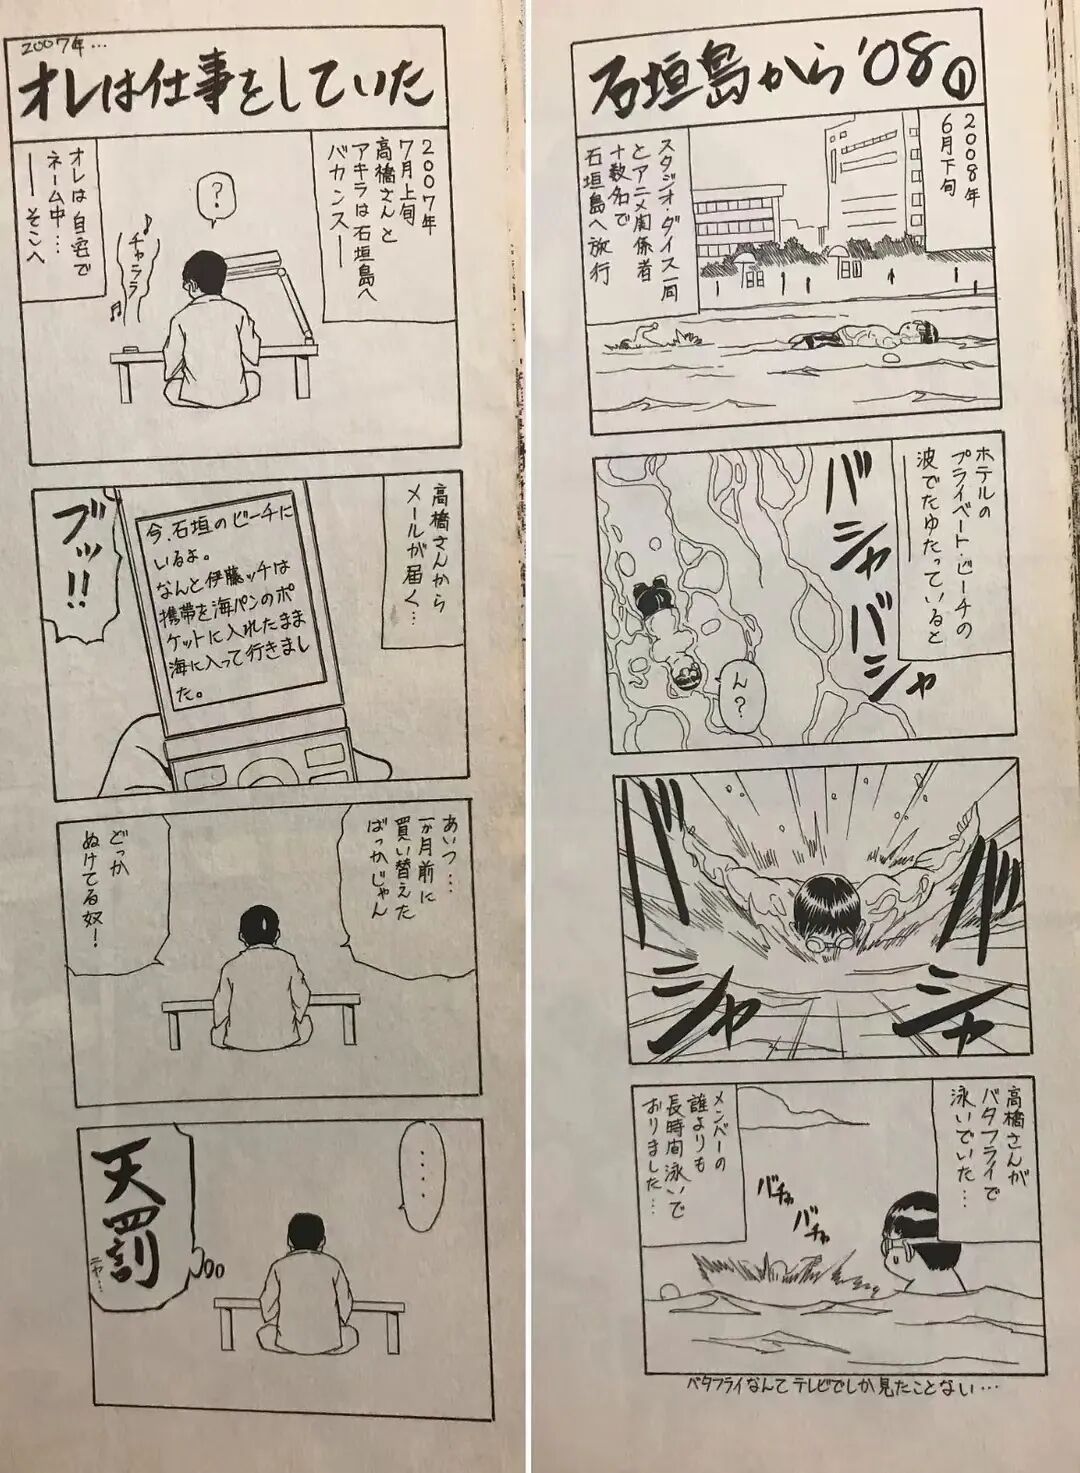 石垣島から'08①
2008年
6月下旬
スタジオ・ダイス一同
とアニメ関係者
十数名で
石垣島へ旅行
ホテルの
プライベート・ビーチの
波でたゆたっていると
――
バシャバシャ
ん?
バシャ
バシャ
高橋さんが
バタフライで
泳いでいた…
バチャ
バチャ
メンバーの
誰よりも
長時間泳いで
おりました…
バタフライなんてテレビでしか見たことない…
2007年…
オレは仕事をしていた
2007年
7月上旬
高橋さんと
アキラは石垣島へ
バカンス――
?
♪チャララ♬
オレは自宅で
ネーム中…
――そこへ
高橋さんから
メールが届く…
今、石垣のビーチに
いるよ。
なんと伊藤ッチは
携帯を海パンのポ
ケットに入れたまま
海に入って行きまし
た。
ブッ!!
あいつ…
一か月前に
買い替えた
ばっかじゃん
どっか
ぬけてる奴!
‥‥
天罰
ニヤ…